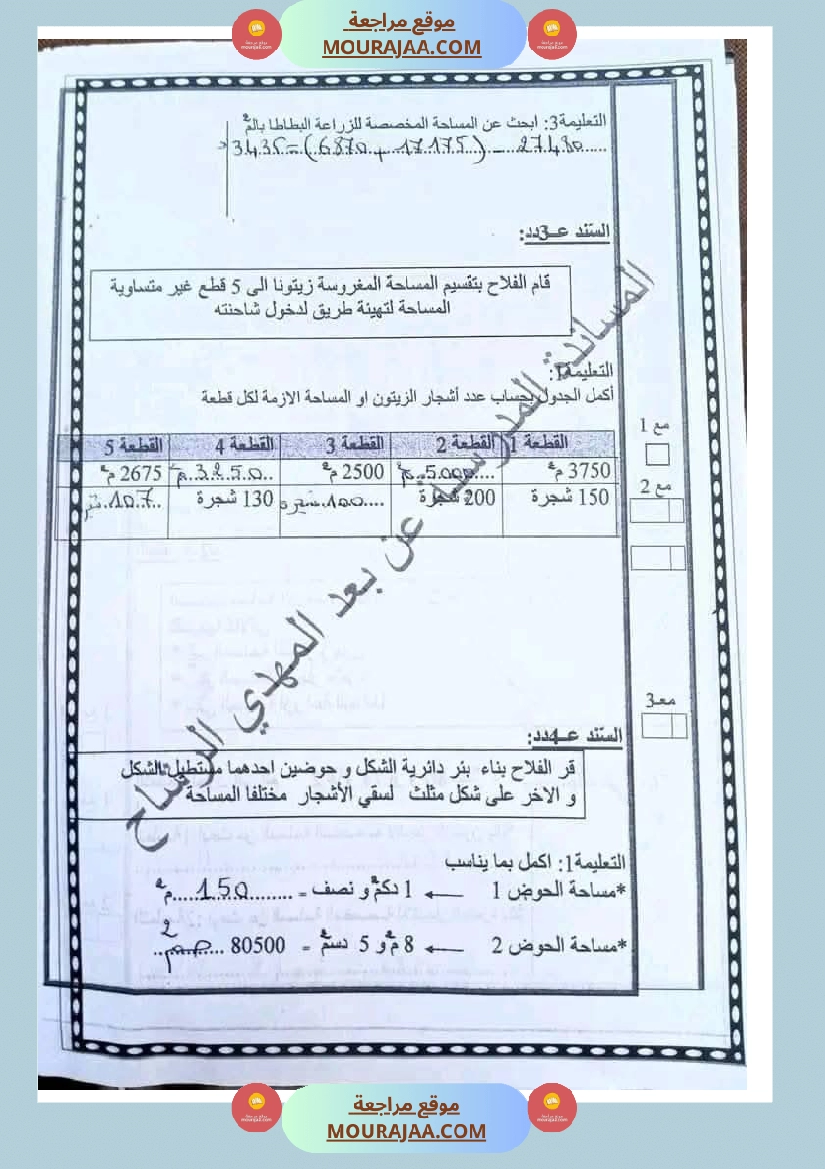 موقع مراجعة
MOURAJAA.COM
التعليمة3: ابحث عن المساحة المخصصة للزراعة البطاطا بالم²
27480 – (17175 + 6870) = 3435
السند عـ3ـدد:
قام الفلاح بتقسيم المساحة المغروسة زيتونا الى 5 قطع غير متساوية
المساحة لتهيئة طريق لدخول شاحنته
التعليمة1:
أكمل الجدول بحساب عدد أشجار الزيتون او المساحة الازمة لكل قطعة
القطعة 1 القطعة 2 القطعة 3 القطعة 4 القطعة 5
3750 م² ....5000 م² 2500 م² ..3250.. م² 2675 م²
150 شجرة 200 شجرة ....100 شجرة 130 شجرة ..107..
مع 1
مع 2
مع3
المساندة المدرسية عن بعد المهدي الرساح
السند عـ4ـدد:
قر الفلاح بناء بئر دائرية الشكل و حوضين احدهما مستطيل الشكل
و الاخر على شكل مثلث لسقي الأشجار مختلفا المساحة
التعليمة1: اكمل بما يناسب
*مساحة الحوض 1 ← 1 دكم² و نصف = ....150.... م²
*مساحة الحوض 2 ← 8 م² و 5 دسم² = 80500 ....صم²....
موقع مراجعة
MOURAJAA.COM